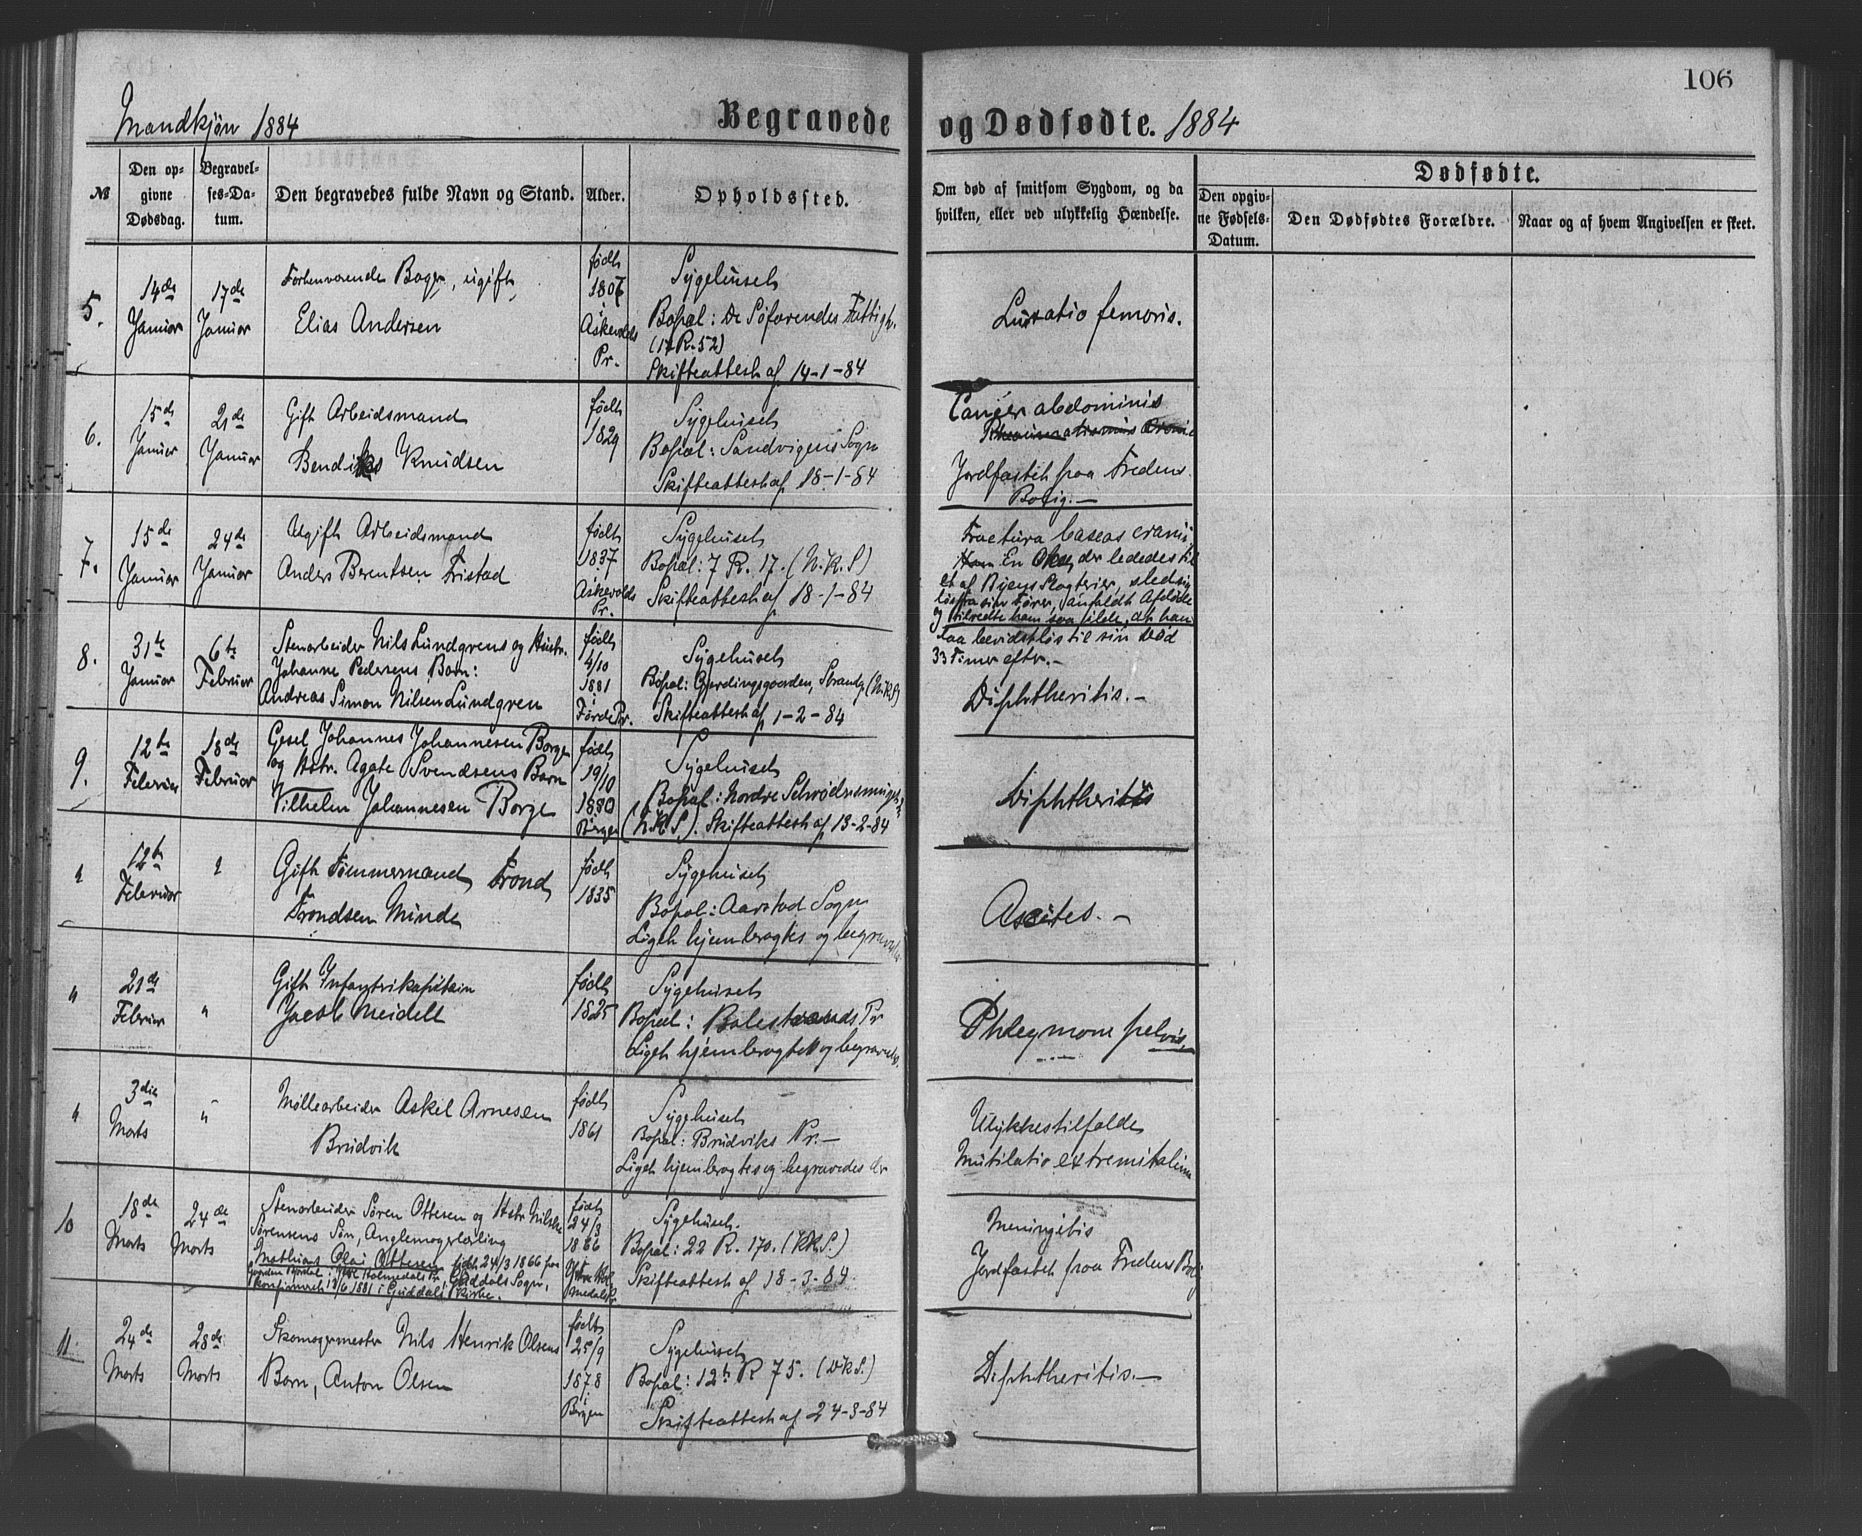 106
Mandkjøn 1884
Begravede
og Dødfødte. 1884
№
Den op-
givne
Dødsdag.
Begravel-
ses-Da-
tum.
Den begravedes fulde Navn og Stand.
Alder.
Opholdssted.
Om død af smitsom Sygdom, og da
hvilken, eller ved ulykkelig Hændelse.
Dødfødte.
Den opgiv-
ne Fødsels-
Datum.
Den Dødfødtes Forældre.
Naar og af hvem Angivelsen er skeet.
5.
14de
Januar
17de
Januar
Forhenværende Bager, ugift,
Elias Andersen
født
1807
Askevolds
Pr.
Sygehuset
Bopæl: De Søfarendes Fattigh.
(17 R. 52)
Skifteattest af 14-1-84
Luxatio femoris.
6.
15de
Januar
21de
Januar
Gift Arbeidsmand
Bendiks Knudsen
født
1829
Sygehuset
Bopæl: Sandvigens Sogn
Skifteattest af 18-1-84
Cancer abdominis
Jordfæstet fra Fredens
Bolig.—
7.
15de
Januar
24de
Januar
Ugift Arbeidsmand
Anders Berentsen Tristad
født
1837
Askevolds
Pr.
Sygehuset
Bopæl: 7 R. 17. (N.K.S)
Skifteattest af 18-1-84
Fractura baseos cranii
En Oxe, der lededes til
et af Byens Slagterier, sled sig
løs fra sin Fører, anfaldt Afdøde
og tilredte ham saa ilde, at han
laa bevidstløs til sin Død
33 Timer efter.—
8.
31te
Januar
6te
Februar
Stenarbeider Nils Lundgrens og Hustr.
Johanne Pedersens Barn:
Andreas Simon Nilsen Lundgren
født
4/10
1881
Førde Pr.
Sygehuset
Bopæl: Gjerdingsgaarden, Strandg (N.K.S)
Skifteattest af 1-2-84
Diphtheritis.—
9.
12te
Februar
18de
Februar
Gesel Johannes Johannesen Borge
og Hstr. Agate Svendsens Barn
Vilhelm Johannesen Borge
født
19/10
1880
Bergen
Sygehuset
Bopæl: Nordre Schrødersmuget
(N.K.S). Skifteattest af 13-2-84
Diphtheritis
"
12te
Februar
"
Gift Tømmermand Trond
Trondsen Minde
født
1835
Sygehuset
Bopæl: Aarstad Sogn
Liget hjembragtes og begravedes
Ascites.—
"
21de
Februar
"
Gift Infanterikapitain
Jacob Meidell
født
1825
Sygehuset
Bopæl: Balestrands Pr
Liget hjembragtes og begravedes.
Phlegmone pelvis.
"
3die
Marts
"
Møllearbeider Askel Arnesen
Brudvik
født
1861
Sygehuset
Bopæl: Brudviks Pr.—
Liget hjembragtes og begravedes der
Ulykkestilfælde
Mutilatio extremitatum
10
18de
Marts
24de
Marts
Stenarbeider Søren Ottesen og Hstr Nilske
Sørensens Søn, Anglemagerlærling
Mathias Olai Ottesen født 24/3 1866 paa
Gaarden i Ytre Holmedals Pr, Guddals Sogn,
konfirmeret 1881 i Guddals Kirke.
født
24/3
1866
Ytre Hol
medals Pr.
Sygehuset.
Bopæl: 22 R. 170. (K.K.S.)
Skifteattest af 18-3-84.
Meningitis
Jordfæstet fra Fredens Bolig
11.
24de
Marts
28de
Marts
Skomagermester Nils Henrik Olsens
Barn, Anton Olsen
født
25/9
1878
Bergen
Sygehuset
Bopæl: 12te R 75. (D.K.S.)
Skifteattest af 24-3-84
Diphtheritis.—